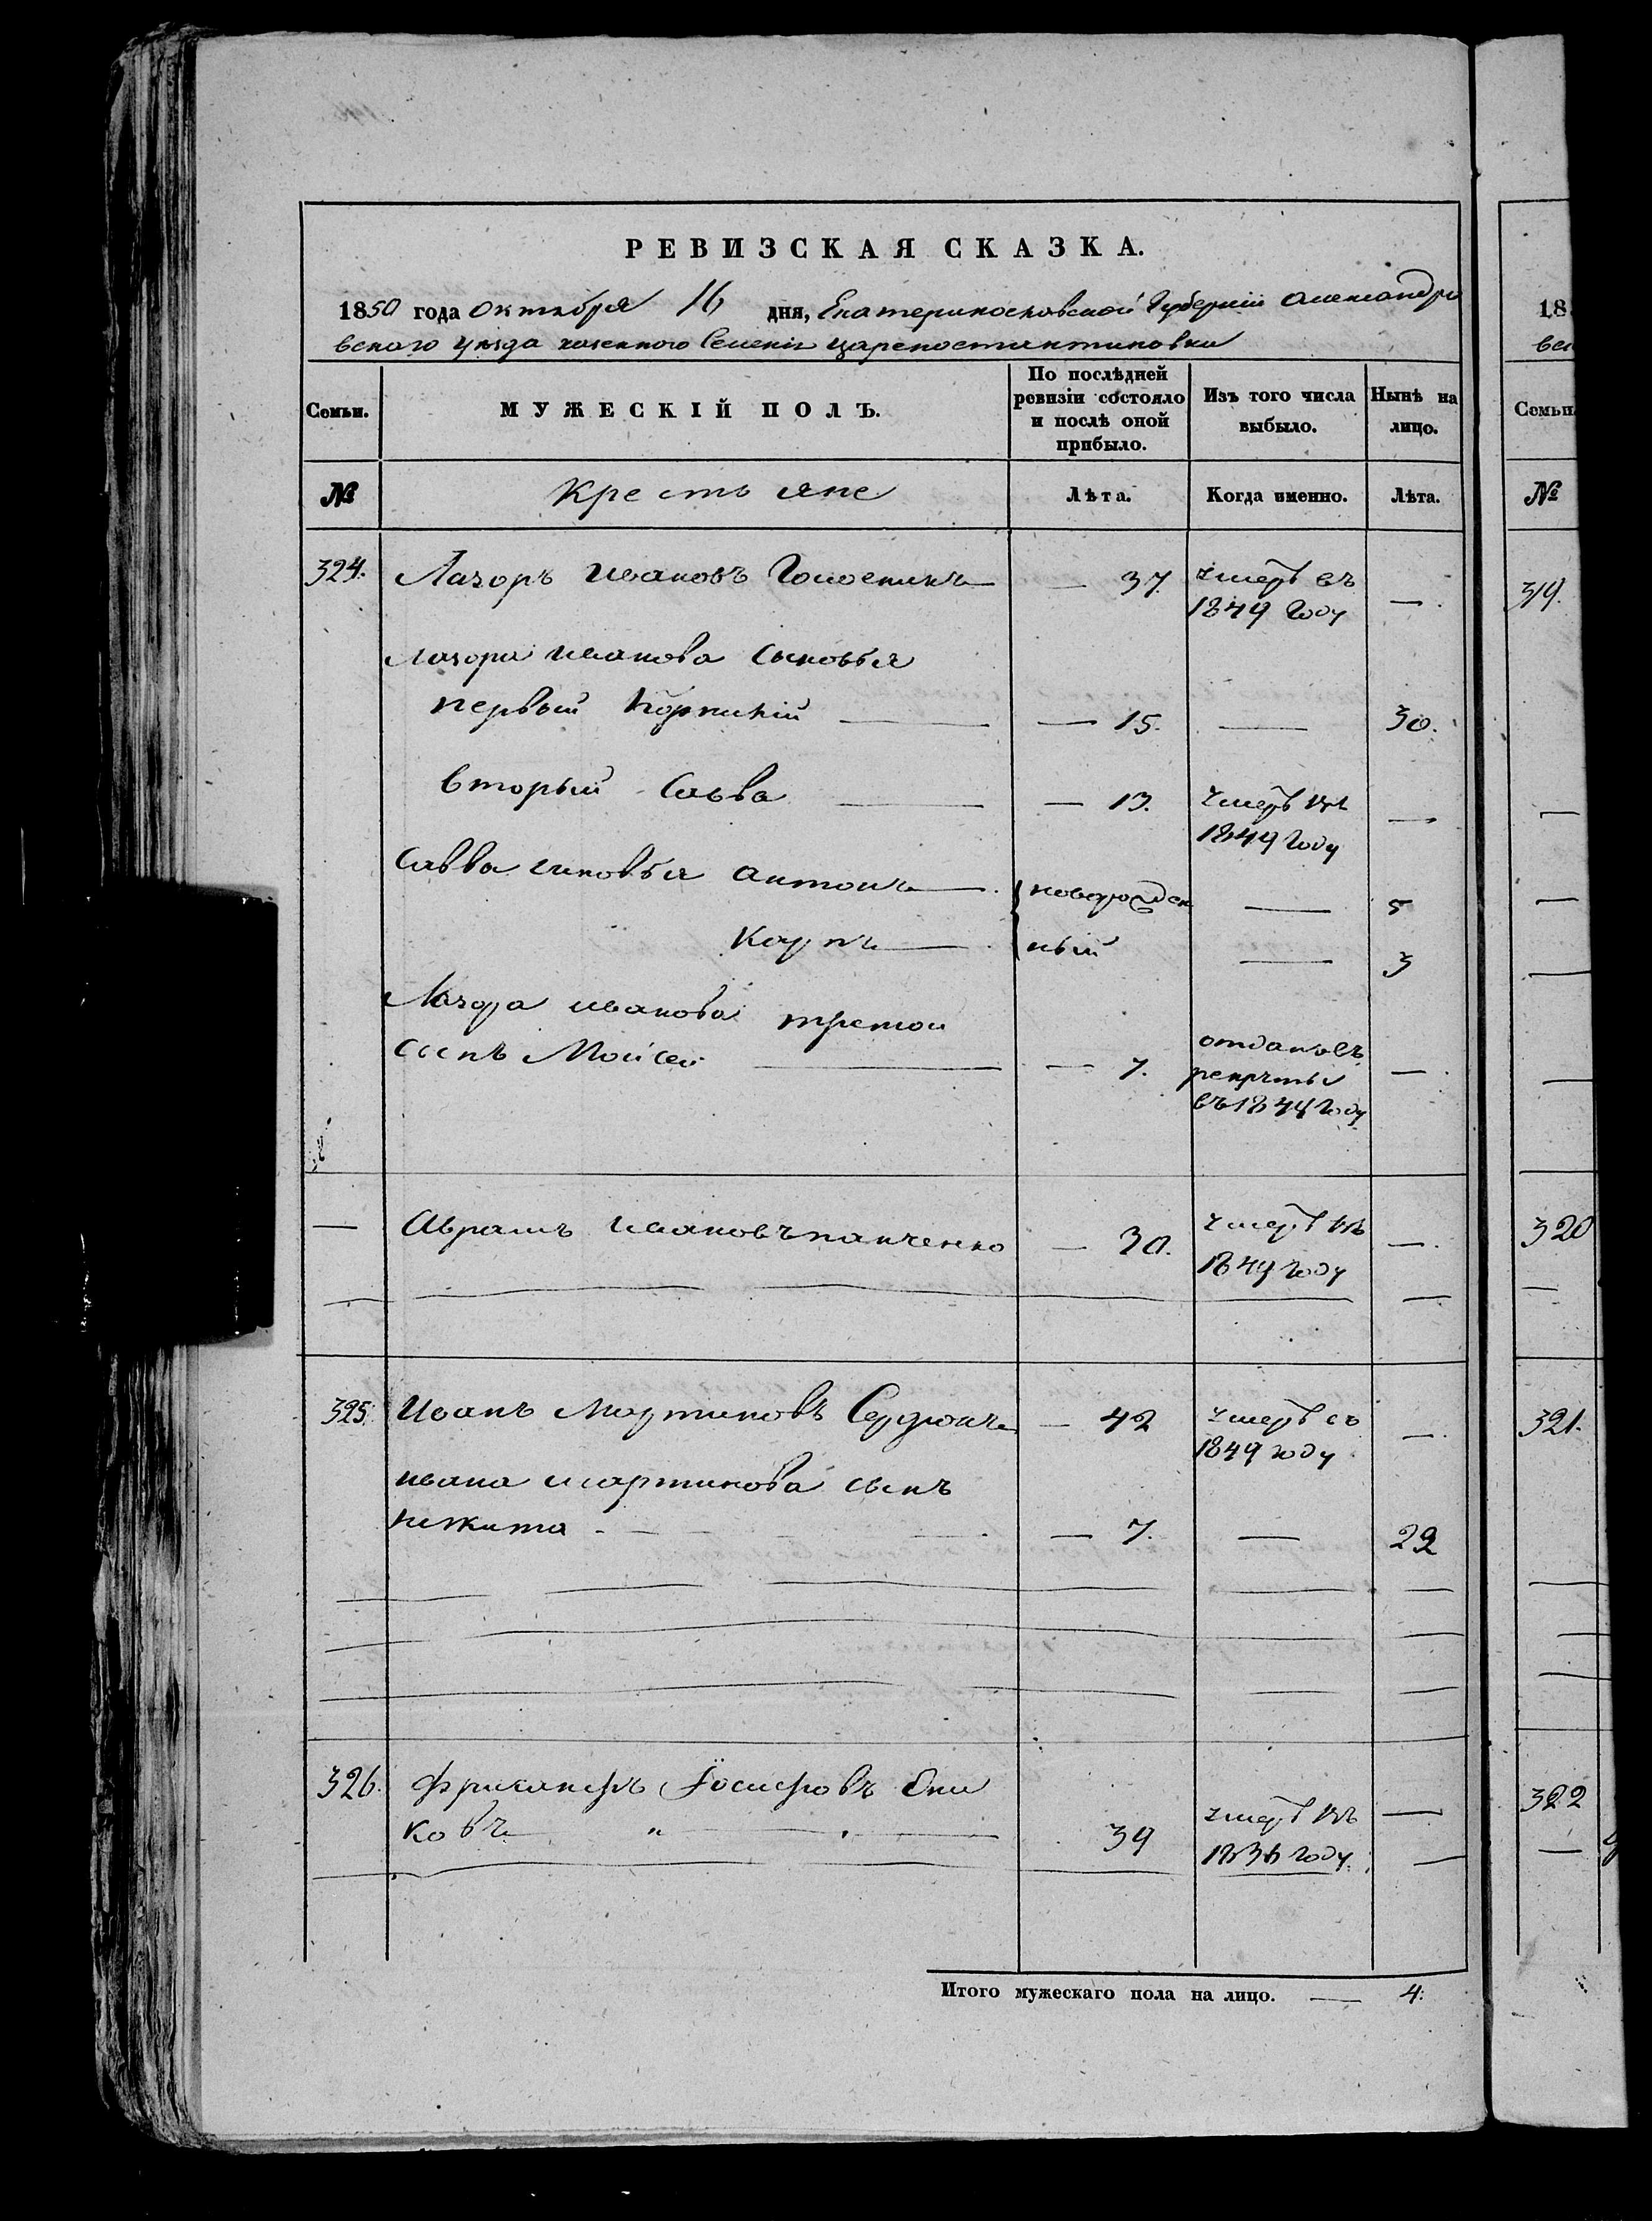 РЕВИЗСКАЯ СКАЗКА.
1850 года октября 16 дня, Екатериносковской Губернии Александро
вского уезда казенного Селения Цареконстантиновки
Семьи. МУЖЕСКІЙ ПОЛЪ. По послѣдней ревизіи состояло и послѣ оной прибыло. Изъ того числа выбыло. Нынѣ на лицо.
№ Крестьяне Лѣта. Когда именно. Лѣта.
324. Лазоръ Ивановъ — 37. умеръ въ 1849 Году —.
Лазора Иванова Сыновья
первый — 15. — 30.
вторый Савва — 13. умеръ въ 1849 Году —
Савва синовья Антонъ — новорожден — 5
Карпъ — ный — 3
Лазора Иванова третои
сынъ Мойсей — 7. отданъ въ рекруты въ 1844 Году —.
— Аврамъ Ивановъ панченко — 30. умеръ въ 1849 Году —.
325. Иванъ Мартиновъ Сердюкъ — 42 умеръ въ 1849 году —.
Ивана Мартинова сынъ
Никита — 7. — 22
326. Осиповъ
ковъ — 39 умеръ въ 1836 году. —
Итого мужескаго пола на лицо. — 4.
18
вск
Семьи
№
319.
320
321.
322